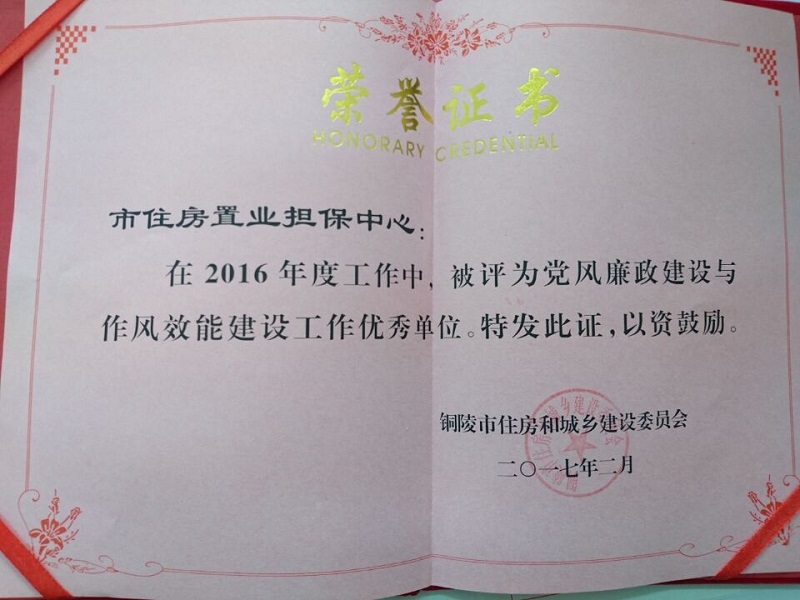 荣誉证书
HONORARY CREDENTIAL
市住房置业担保中心：
在 2016 年度工作中，被评为党风廉政建设与
作风效能建设工作优秀单位。特发此证，以资鼓励。
铜陵市住房和城乡建设委员会
二〇一七年二月